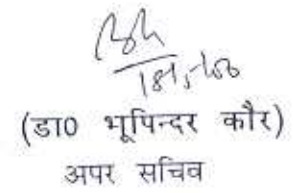 (डा0 भूपिन्दर कौर)
अपर सचिव